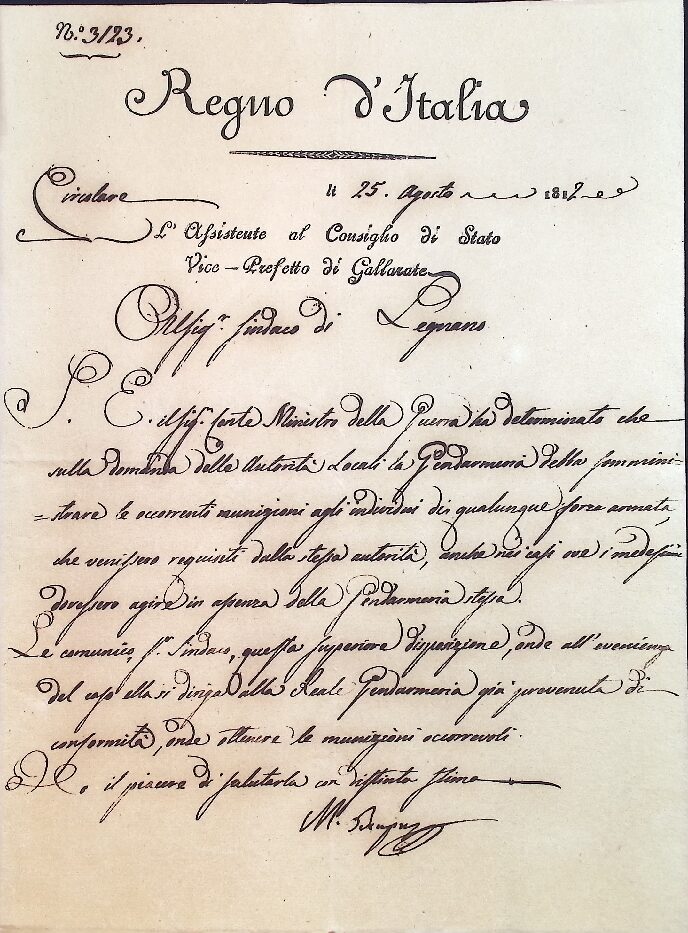 N.º 3123.
Regno d'Italia
Circolare
li 25. Agosto 1812
L' Assistente al Consiglio di Stato
Vice-Prefetto di Gallarate
Al Sig.r Sindaco di Legnano
S. E. il Sig. Conte Ministro della Guerra ha determinato che
sulla domanda delle Autorità Locali la Gendarmeria debba sommini=
=strare le occorrenti munizioni agli individui di qualunque forza armata,
che venissero requisiti dalla stessa autorità, anche nei casi ove i medesimi
dovessero agire in assenza della Gendarmeria stessa.
Le comunico, S.r Sindaco, questa superiore disposizione, onde all'evenienza
del caso ella si diriga alla Reale Gendarmeria già prevenuta di
conformità, onde ottenere le munizioni occorrevoli.
Ho il piacere di salutarla con distinta stima
M.